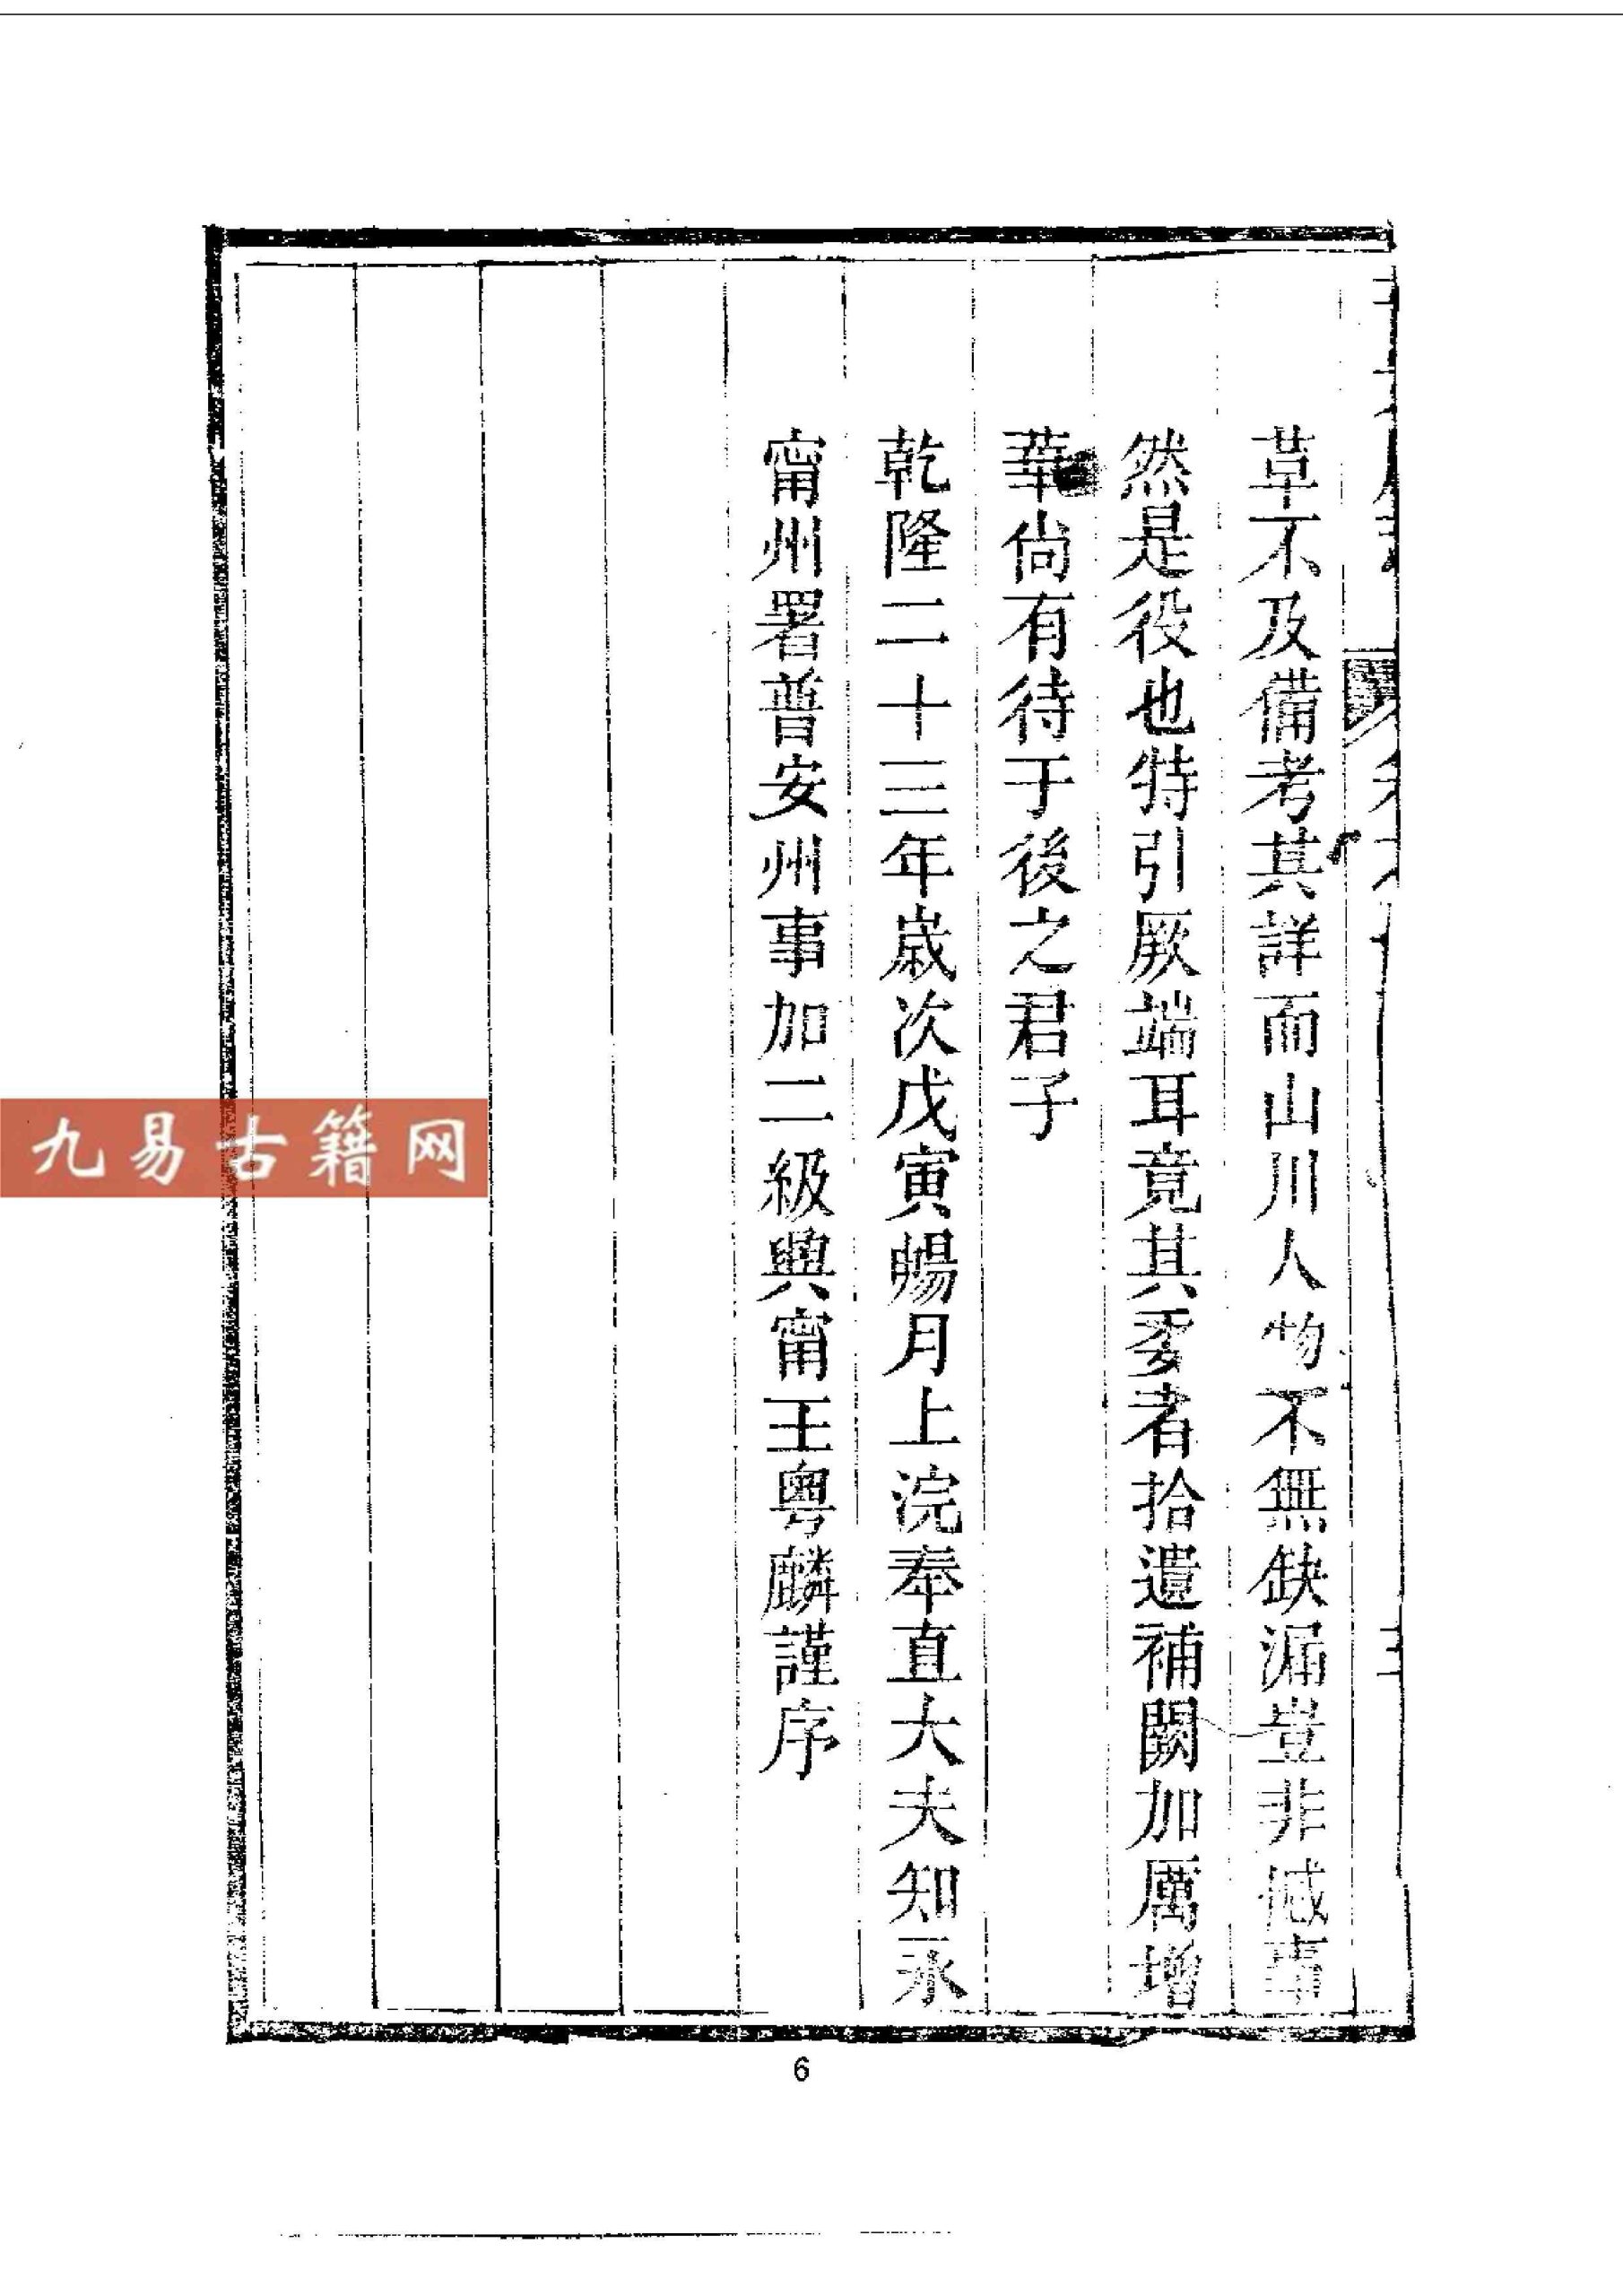 草不及備考其詳而山川人物不無缺漏豈非憾事
然是役也特引厥端耳竟其委者拾遺補闕加厲增
華尚有待于後之君子
乾隆二十三年歲次戊寅暢月上浣奉直大夫知永
甯州署普安州事加二級興甯王粵麟謹序
九易古籍网
6